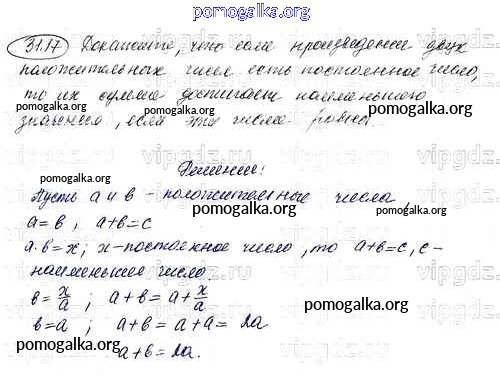 pomogalka.org
31.17 Докажите, что если произведение двух
положительных чисел есть постоянное число,
то их сумма достигает наименьшего
pomogalka.org pomogalka.org
значения, если эти числа равны.
Решение:
pomogalka.org
Пусть a и b - положительные числа
pomogalka.org
a = b, a+b=c
pomogalka.org
a·b=x; x-постоянное число, то a+b=c, c-
наименьшее число.
pomogalka.org
b = x/a ; a+b = a+ x/a
pomogalka.org
b=a ; a+b = a+a = 2a
pomogalka.org pomogalka.org
a+b = 2a.